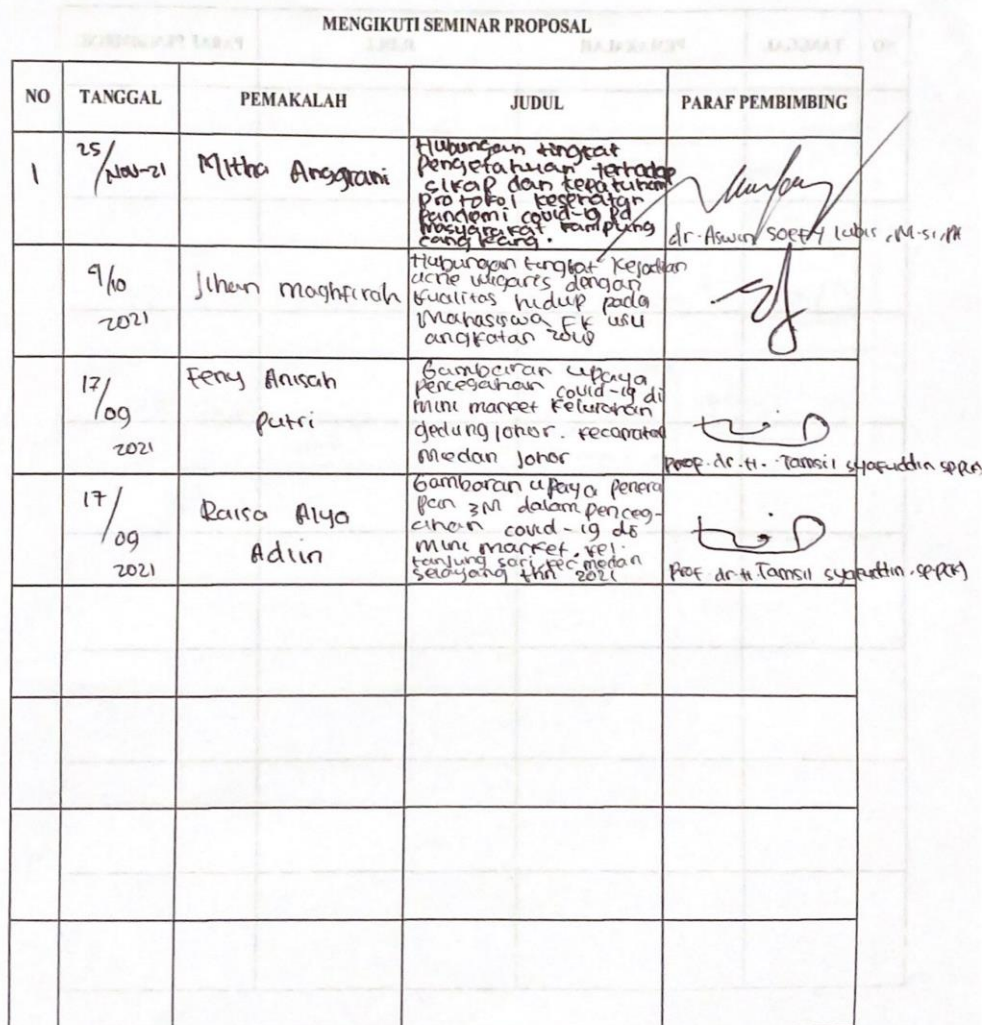 MENGIKUTI SEMINAR PROPOSAL
NO TANGGAL PEMAKALAH JUDUL PARAF PEMBIMBING
1 25/Nov-21 Mitha Anggrani
Hubungan tingkat
Pengetahuan terhadap
sikap dan kepatuhan
Protokol kesehatan
Pandemi covid-19 pd
Masyarakat kampung
dr. Aswin Soefy Lubis, M-si, PA
9/10
2021
Jihan Maghfirah
Hubungan tingkat kejadian
acne vulgaris dengan
kualitas hidup pada
Mahasiswa FK USU
angkatan 2018
17/
09
2021
Feny Anisah
Putri
Gambaran upaya
pencegahan covid-19 di
mini market kelurahan
gedung johor. kecamatan
Medan Johor
Prof. dr. H. Tamsil syafuddin sppk)
17/
09
2021
Raisa Alya
Adlin
Gambaran upaya penera
pan 3M dalam penceg-
ahan covid-19 di
mini market. kel.
tanjung sari, kec medan
selayang thn 2021
Prof. dr. H. Tamsil